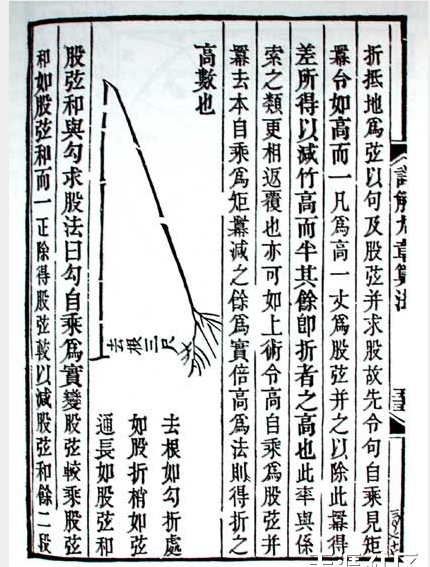 詳解九章算法
折抵地為弦以句及股弦并求股故先令句自乘見矩
羃令如高而一凡為高一丈為股弦并之以除此羃得
差所得以減竹高而半其餘即折者之高也此率與係
索之類更相返覆也亦可如上術令高自乘為股弦并
羃去本自乘為矩羃減之餘為實倍高為法則得折之
高數也
去根三尺
去根如勾折處
如股折梢如弦
通長如股弦和
股弦和與勾求股法曰勾自乘為實變股弦較乘股弦
和如股弦和而一正除得股弦較以減股弦和餘二段